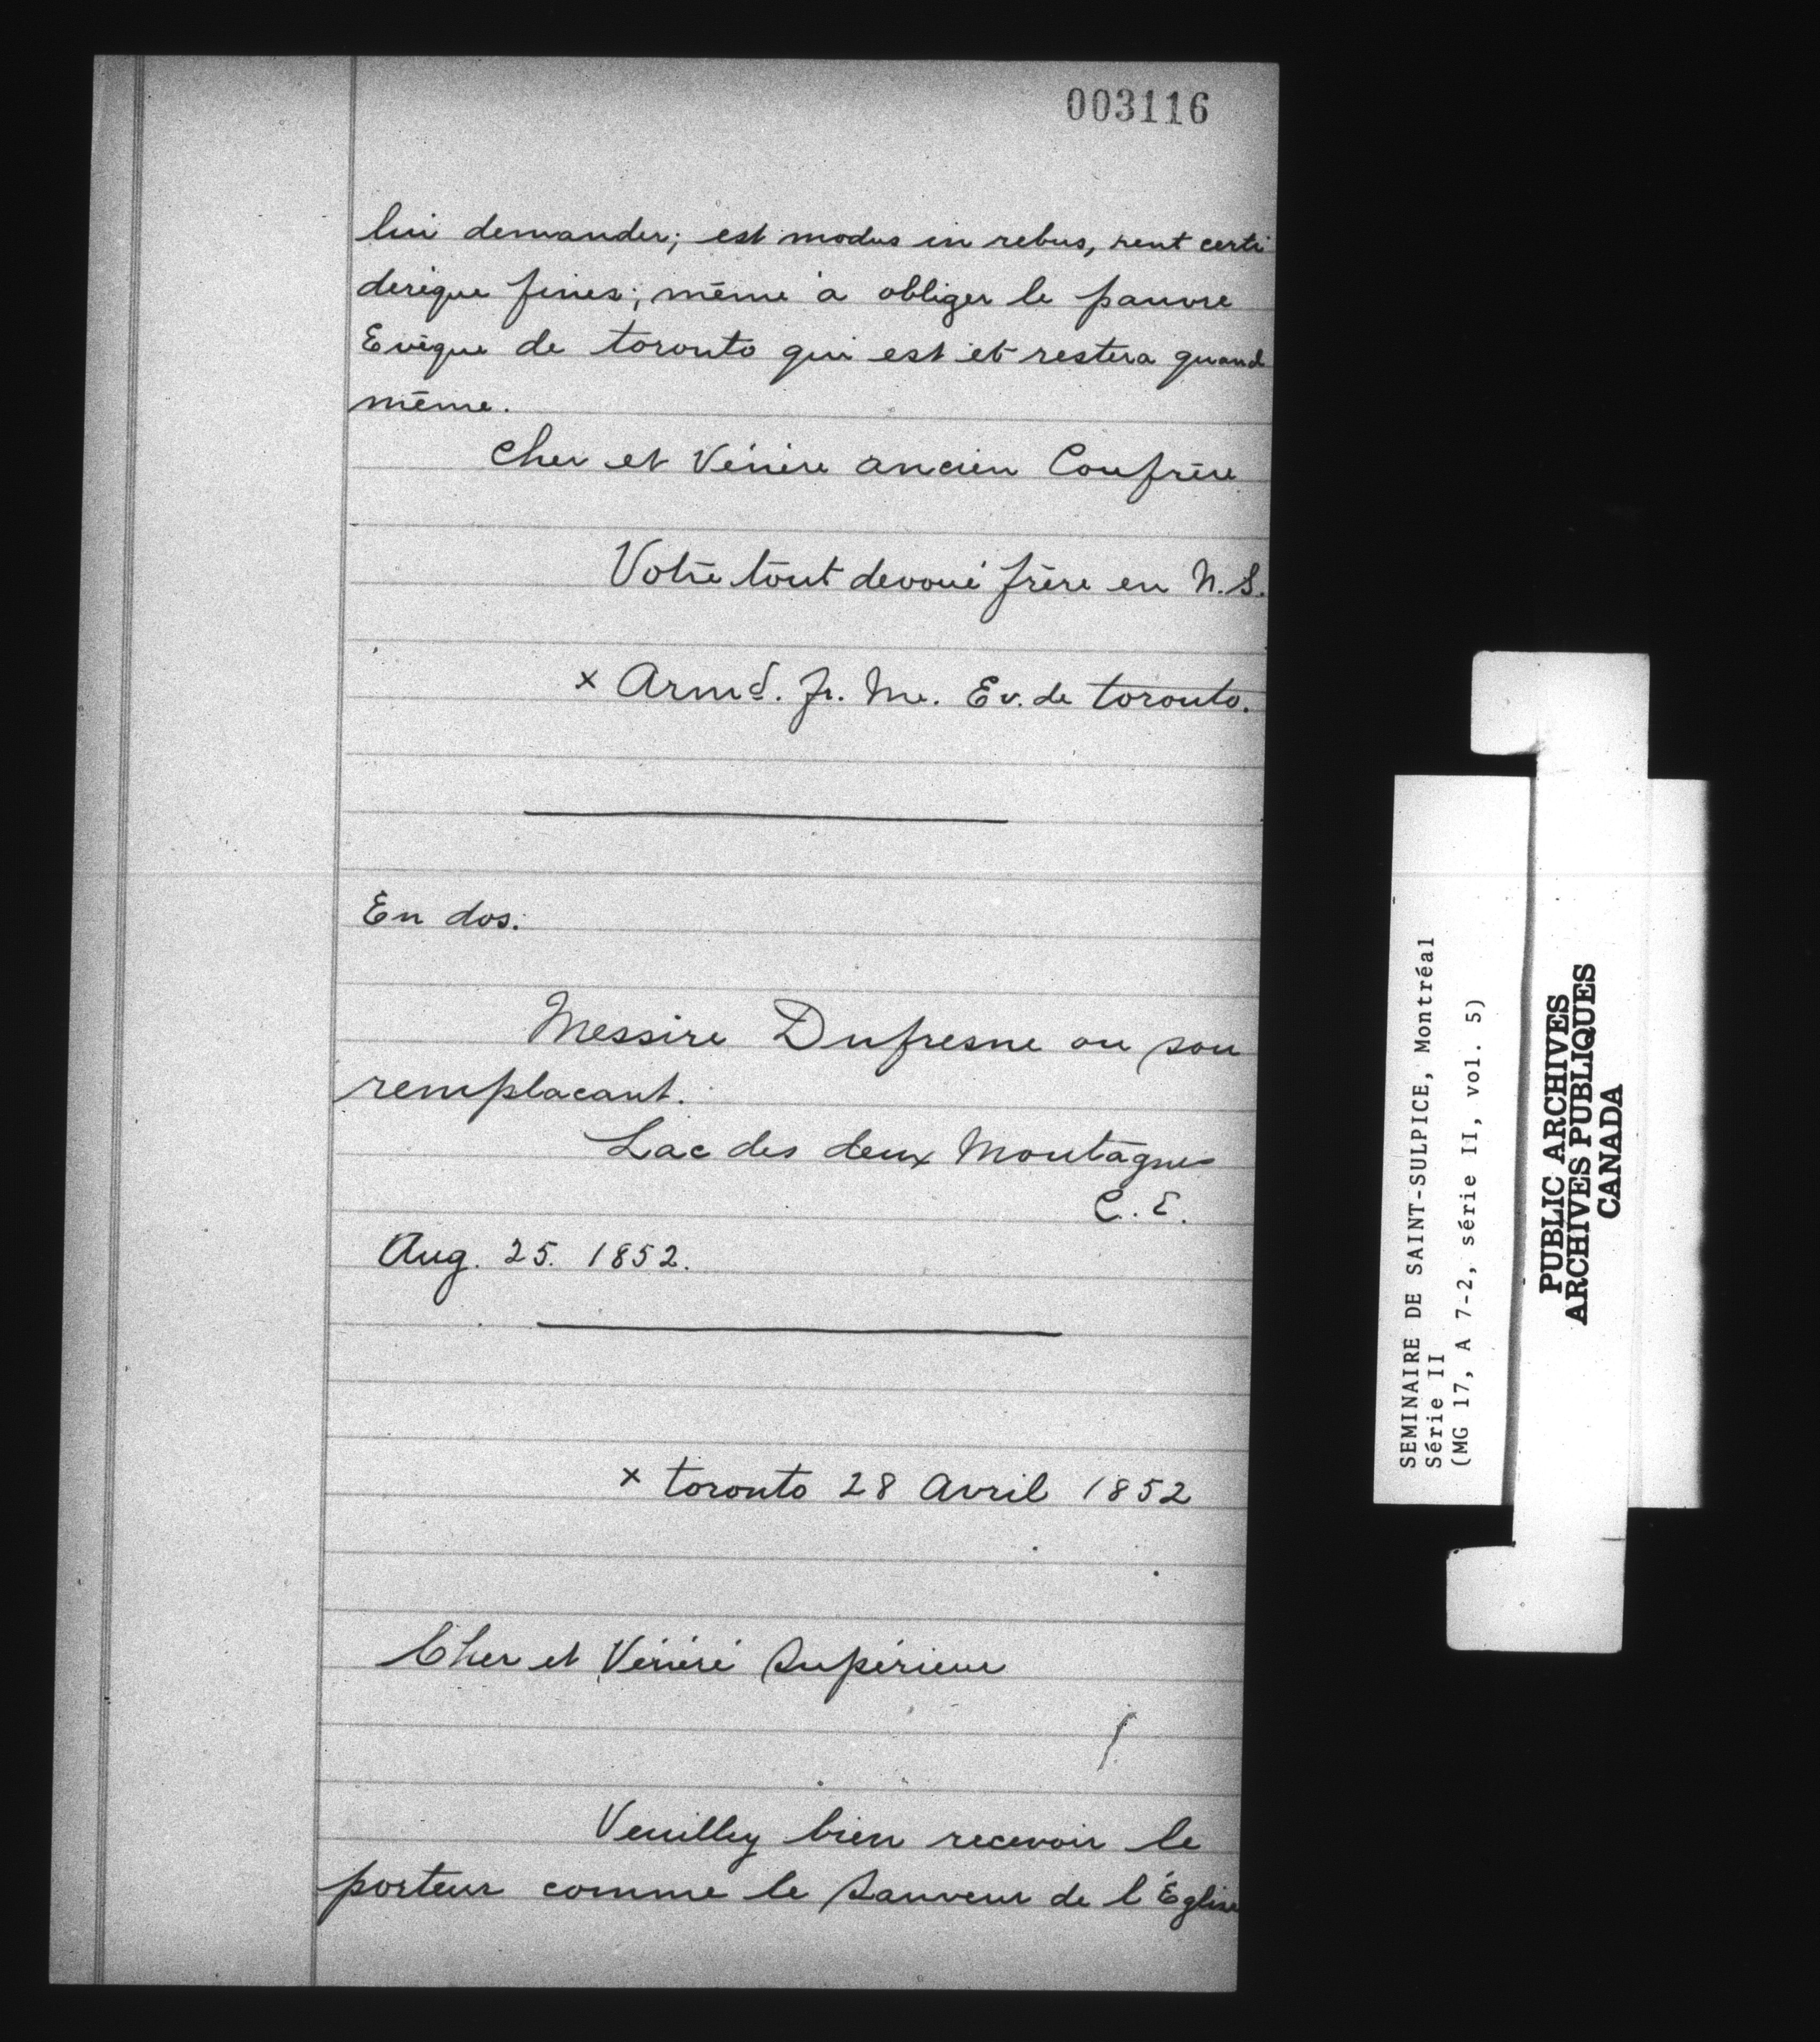 003116
lui demander; est modus in rebus, sent certi
derique fines; même à obliger le pauvre
Evêque de toronto qui est et restera quand
même.
Cher et Vénéré ancien Confrère
Votre tout devoué frère en N.S.
x Armd. fr. Me. Ev. de toronto.
En dos:
Messire Dufresne ou son
remplacant.
Lac des deux Montagnes
C. E.
Aug. 25. 1852.
x toronto 28 Avril 1852
Cher et Vénéré Supérieur
Veuillez bien recevoir le
porteur comme le Sauveur de l'Église
SEMINAIRE DE SAINT-SULPICE, Montréal
Série II
(MG 17, A 7-2, série II, vol. 5)
PUBLIC ARCHIVES
ARCHIVES PUBLIQUES
CANADA